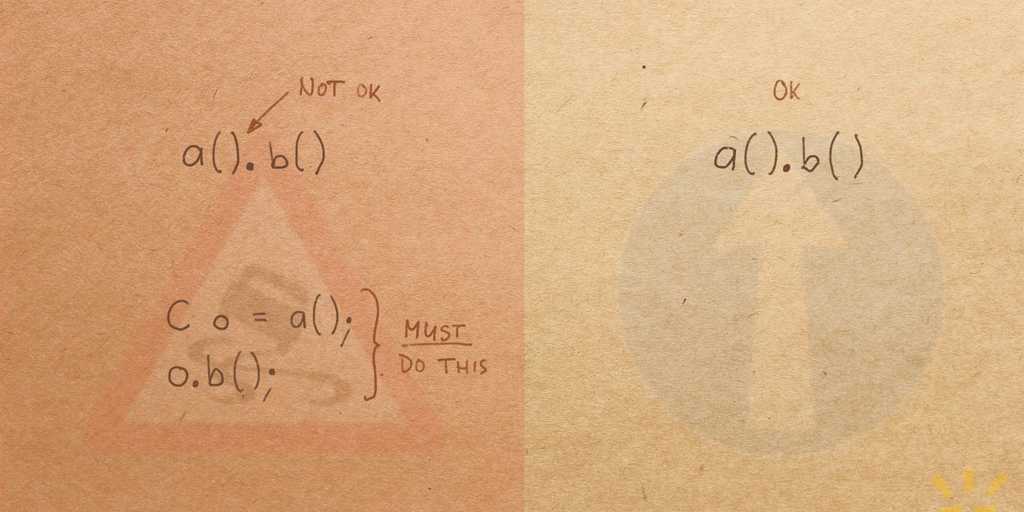 NOT OK
a().b()
C o = a();
o.b();
MUST
DO THIS
OK
a().b()